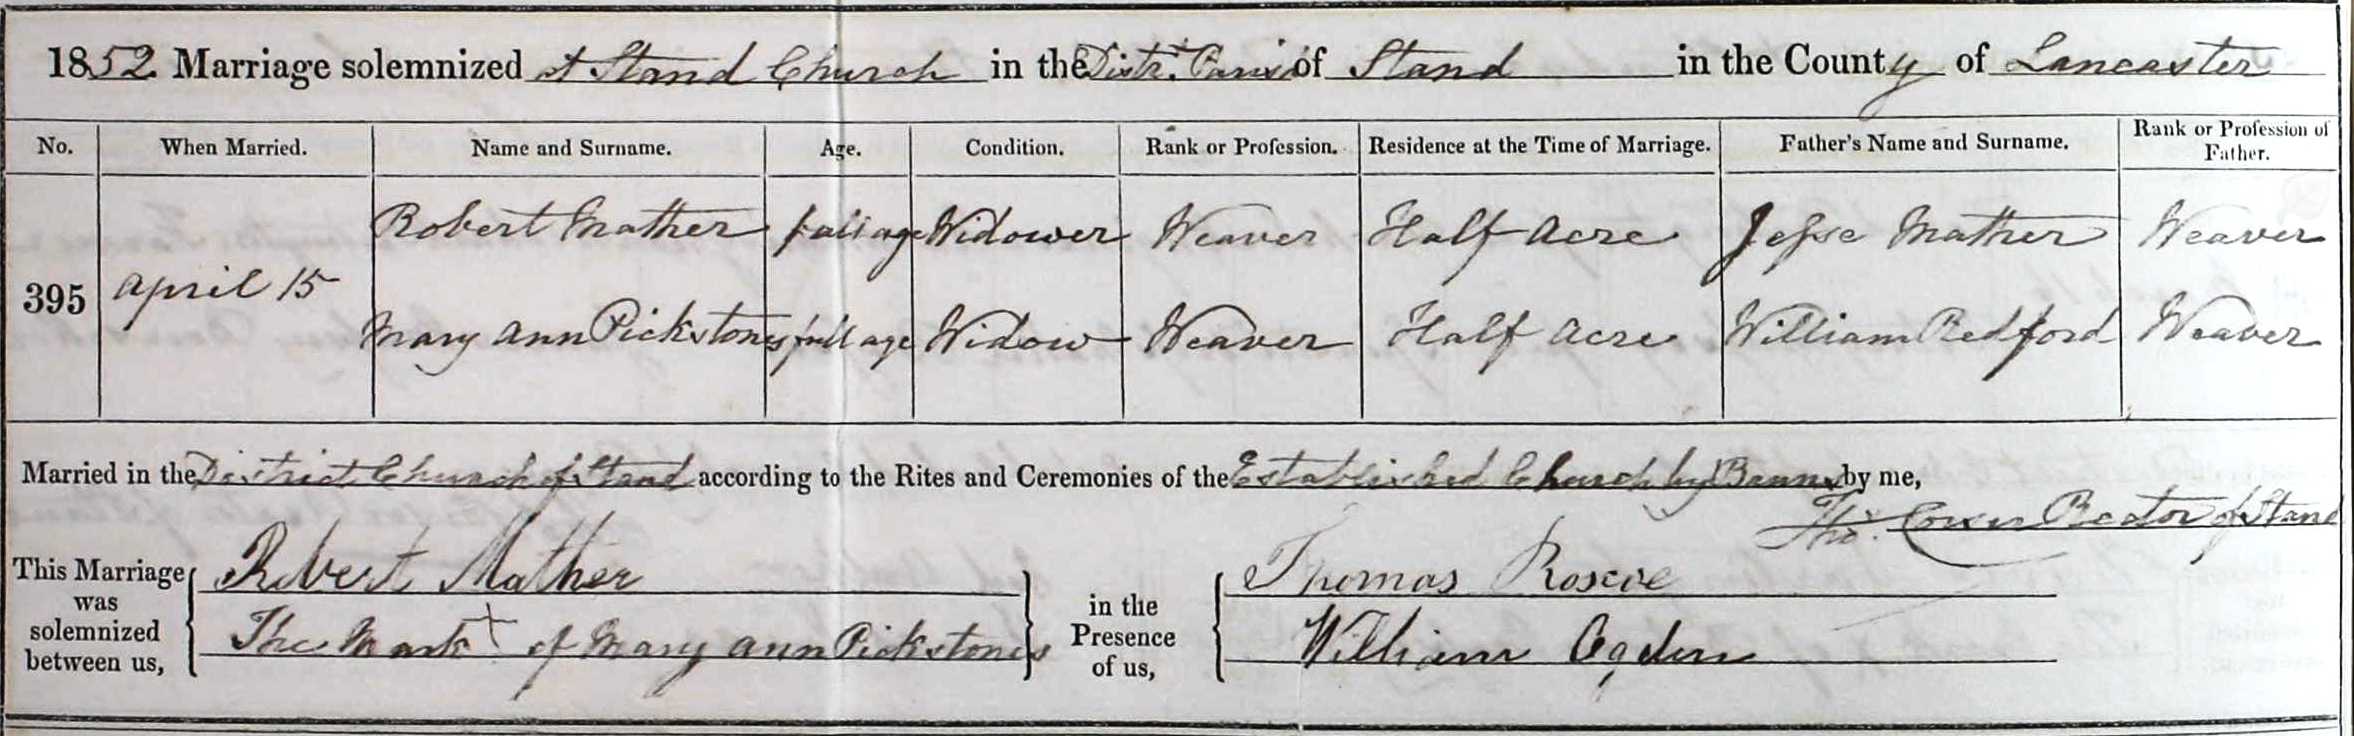 1852. Marriage solemnized at Stand Church in the Distr.t Parish of Stand in the County of Lancaster
No. When Married. Name and Surname. Age. Condition. Rank or Profession. Residence at the Time of Marriage. Father's Name and Surname. Rank or Profession of Father.
Robert Mather full age Widower Weaver Half Acre Jesse Mather Weaver
395 April 15
Mary Ann Pickstones full age Widow Weaver Half Acre William Redford Weaver
Married in the District Church of Stand according to the Rites and Ceremonies of the Established Church by Banns by me,
Thos. Rector of Stand
This Marriage was solemnized between us, Robert Mather in the Presence of us, Thomas Roscoe
The Mark + of Mary Ann Pickstones William Ogden